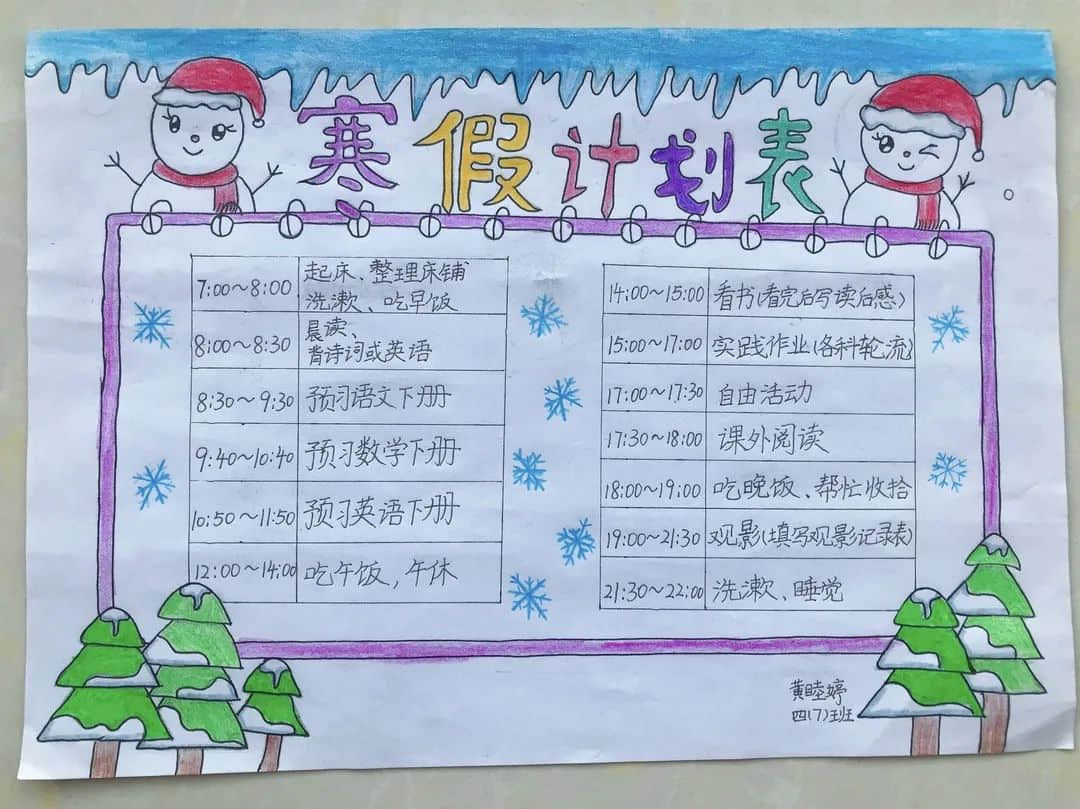 寒假计划表
7:00~8:00 起床、整理床铺
洗漱、吃早饭
8:00~8:30 晨读、
背诗词或英语
8:30~9:30 预习语文下册
9:40~10:40 预习数学下册
10:50~11:50 预习英语下册
12:00~14:00 吃午饭,午休
14:00~15:00 看书(看完后写读后感)
15:00~17:00 实践作业(各科轮流)
17:00~17:30 自由活动
17:30~18:00 课外阅读
18:00~19:00 吃晚饭、帮忙收拾
19:00~21:30 观影(填写观影记录表)
21:30~22:00 洗漱、睡觉
黄睦婷
四(7)班